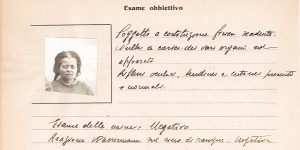 Esame obbiettivo
Soggetto a costituzione fisica mediocre.
Nulla a carico dei vari organi ed
apparati
Riflessi oculari, tendinei e cutanei presenti
e normali.
Esame delle urine: Negativo
Reazione Wassermann nel siero di sangue: Negativa